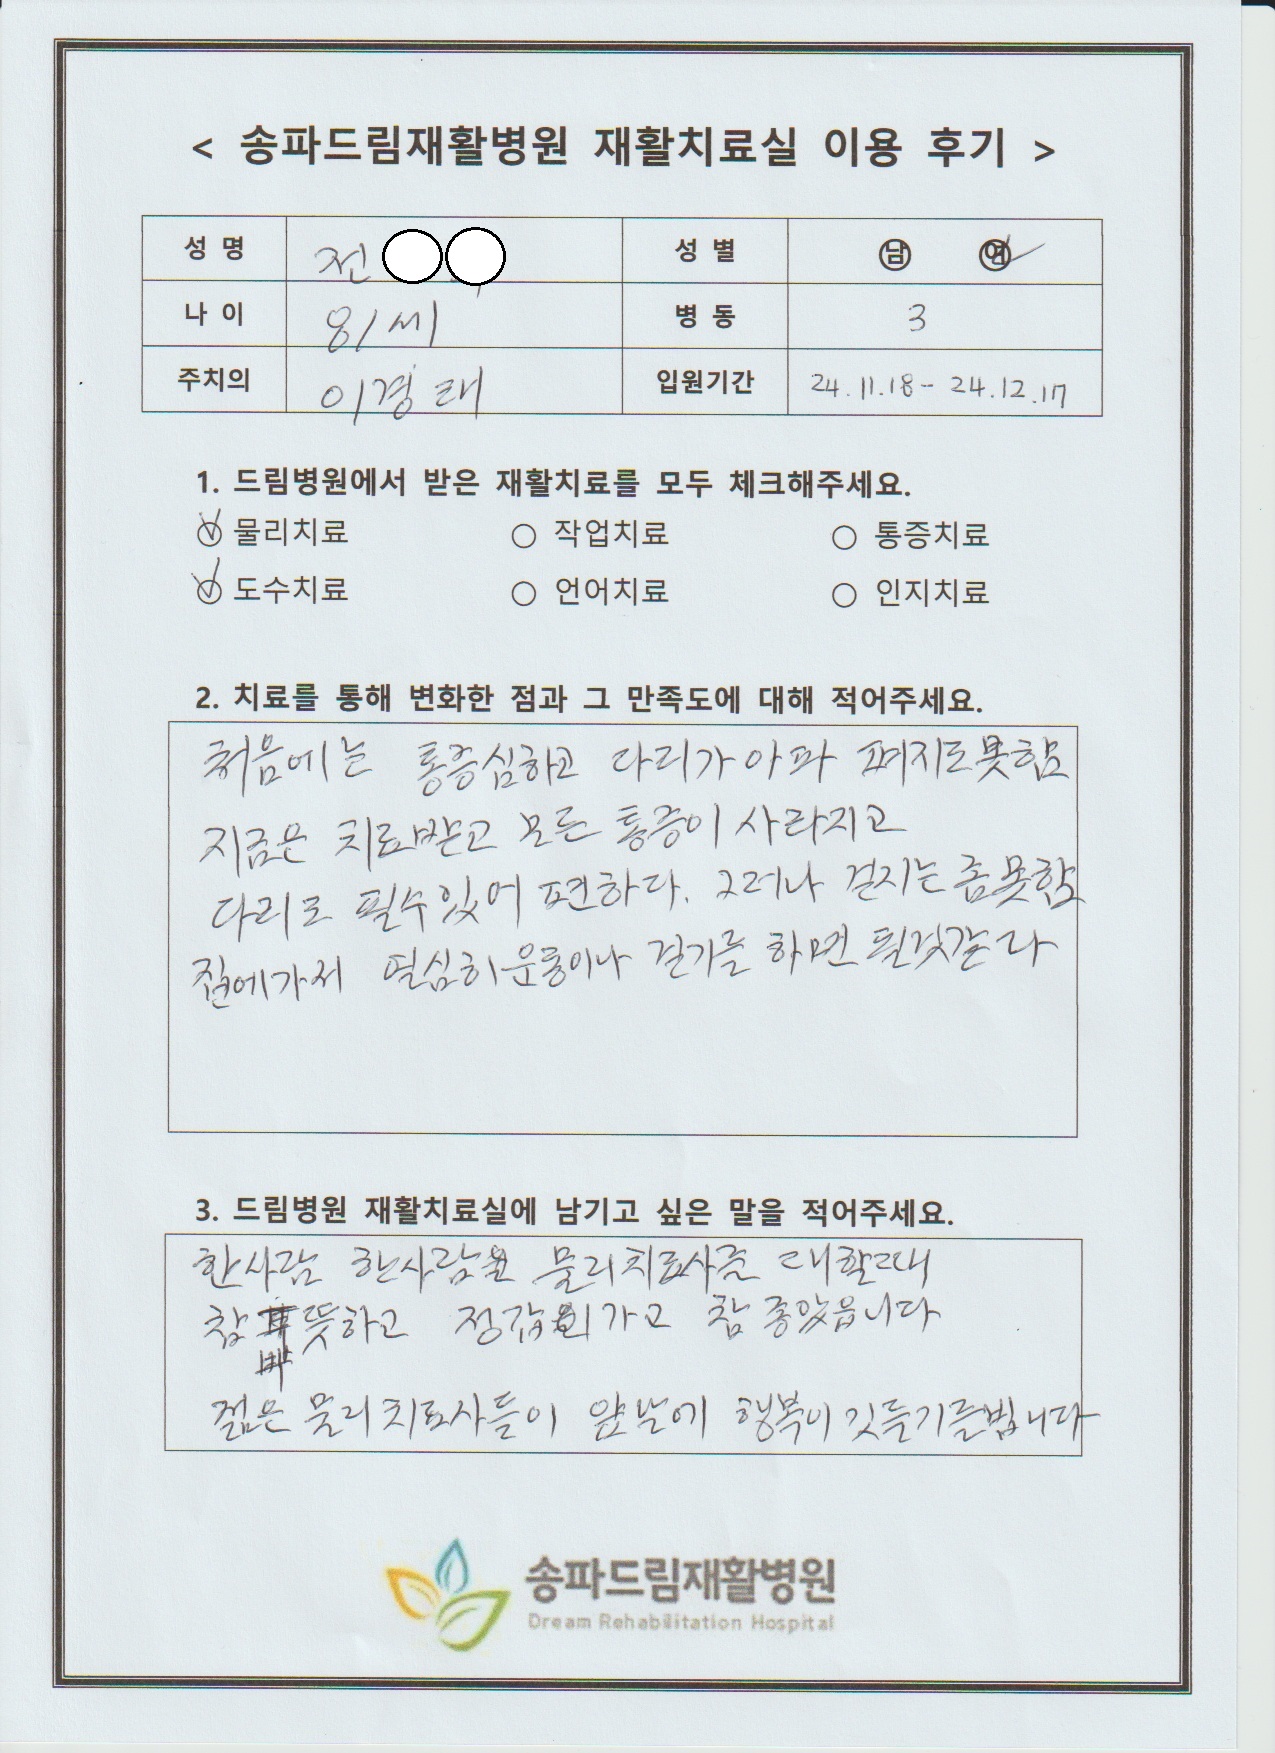 < 송파드림재활병원 재활치료실 이용 후기 >
성 명 전 성 별 남 여
나 이 81세 병 동 3
주치의 이경래 입원기간 24.11.18 - 24.12.17
1. 드림병원에서 받은 재활치료를 모두 체크해주세요.
물리치료 작업치료 통증치료
도수치료 언어치료 인지치료
2. 치료를 통해 변화한 점과 그 만족도에 대해 적어주세요.
처음에는 통증심하고 다리가 아파 펴지도 못함
지금은 치료받고 모든 통증이 사라지고
다리도 필수있어 편하다. 그러나 걷지는 좀 못함
집에가서 열심히 운동이나 걷기를 하면 될것같다
3. 드림병원 재활치료실에 남기고 싶은 말을 적어주세요.
한사람 한사람을 물리치료사를 대할때
참 뜻하고 정감이 가고 참 좋았읍니다
젊은 물리치료사들이 앞날에 행복이 깃들기를 빕니다
송파드림재활병원
Dream Rehabilitation Hospital